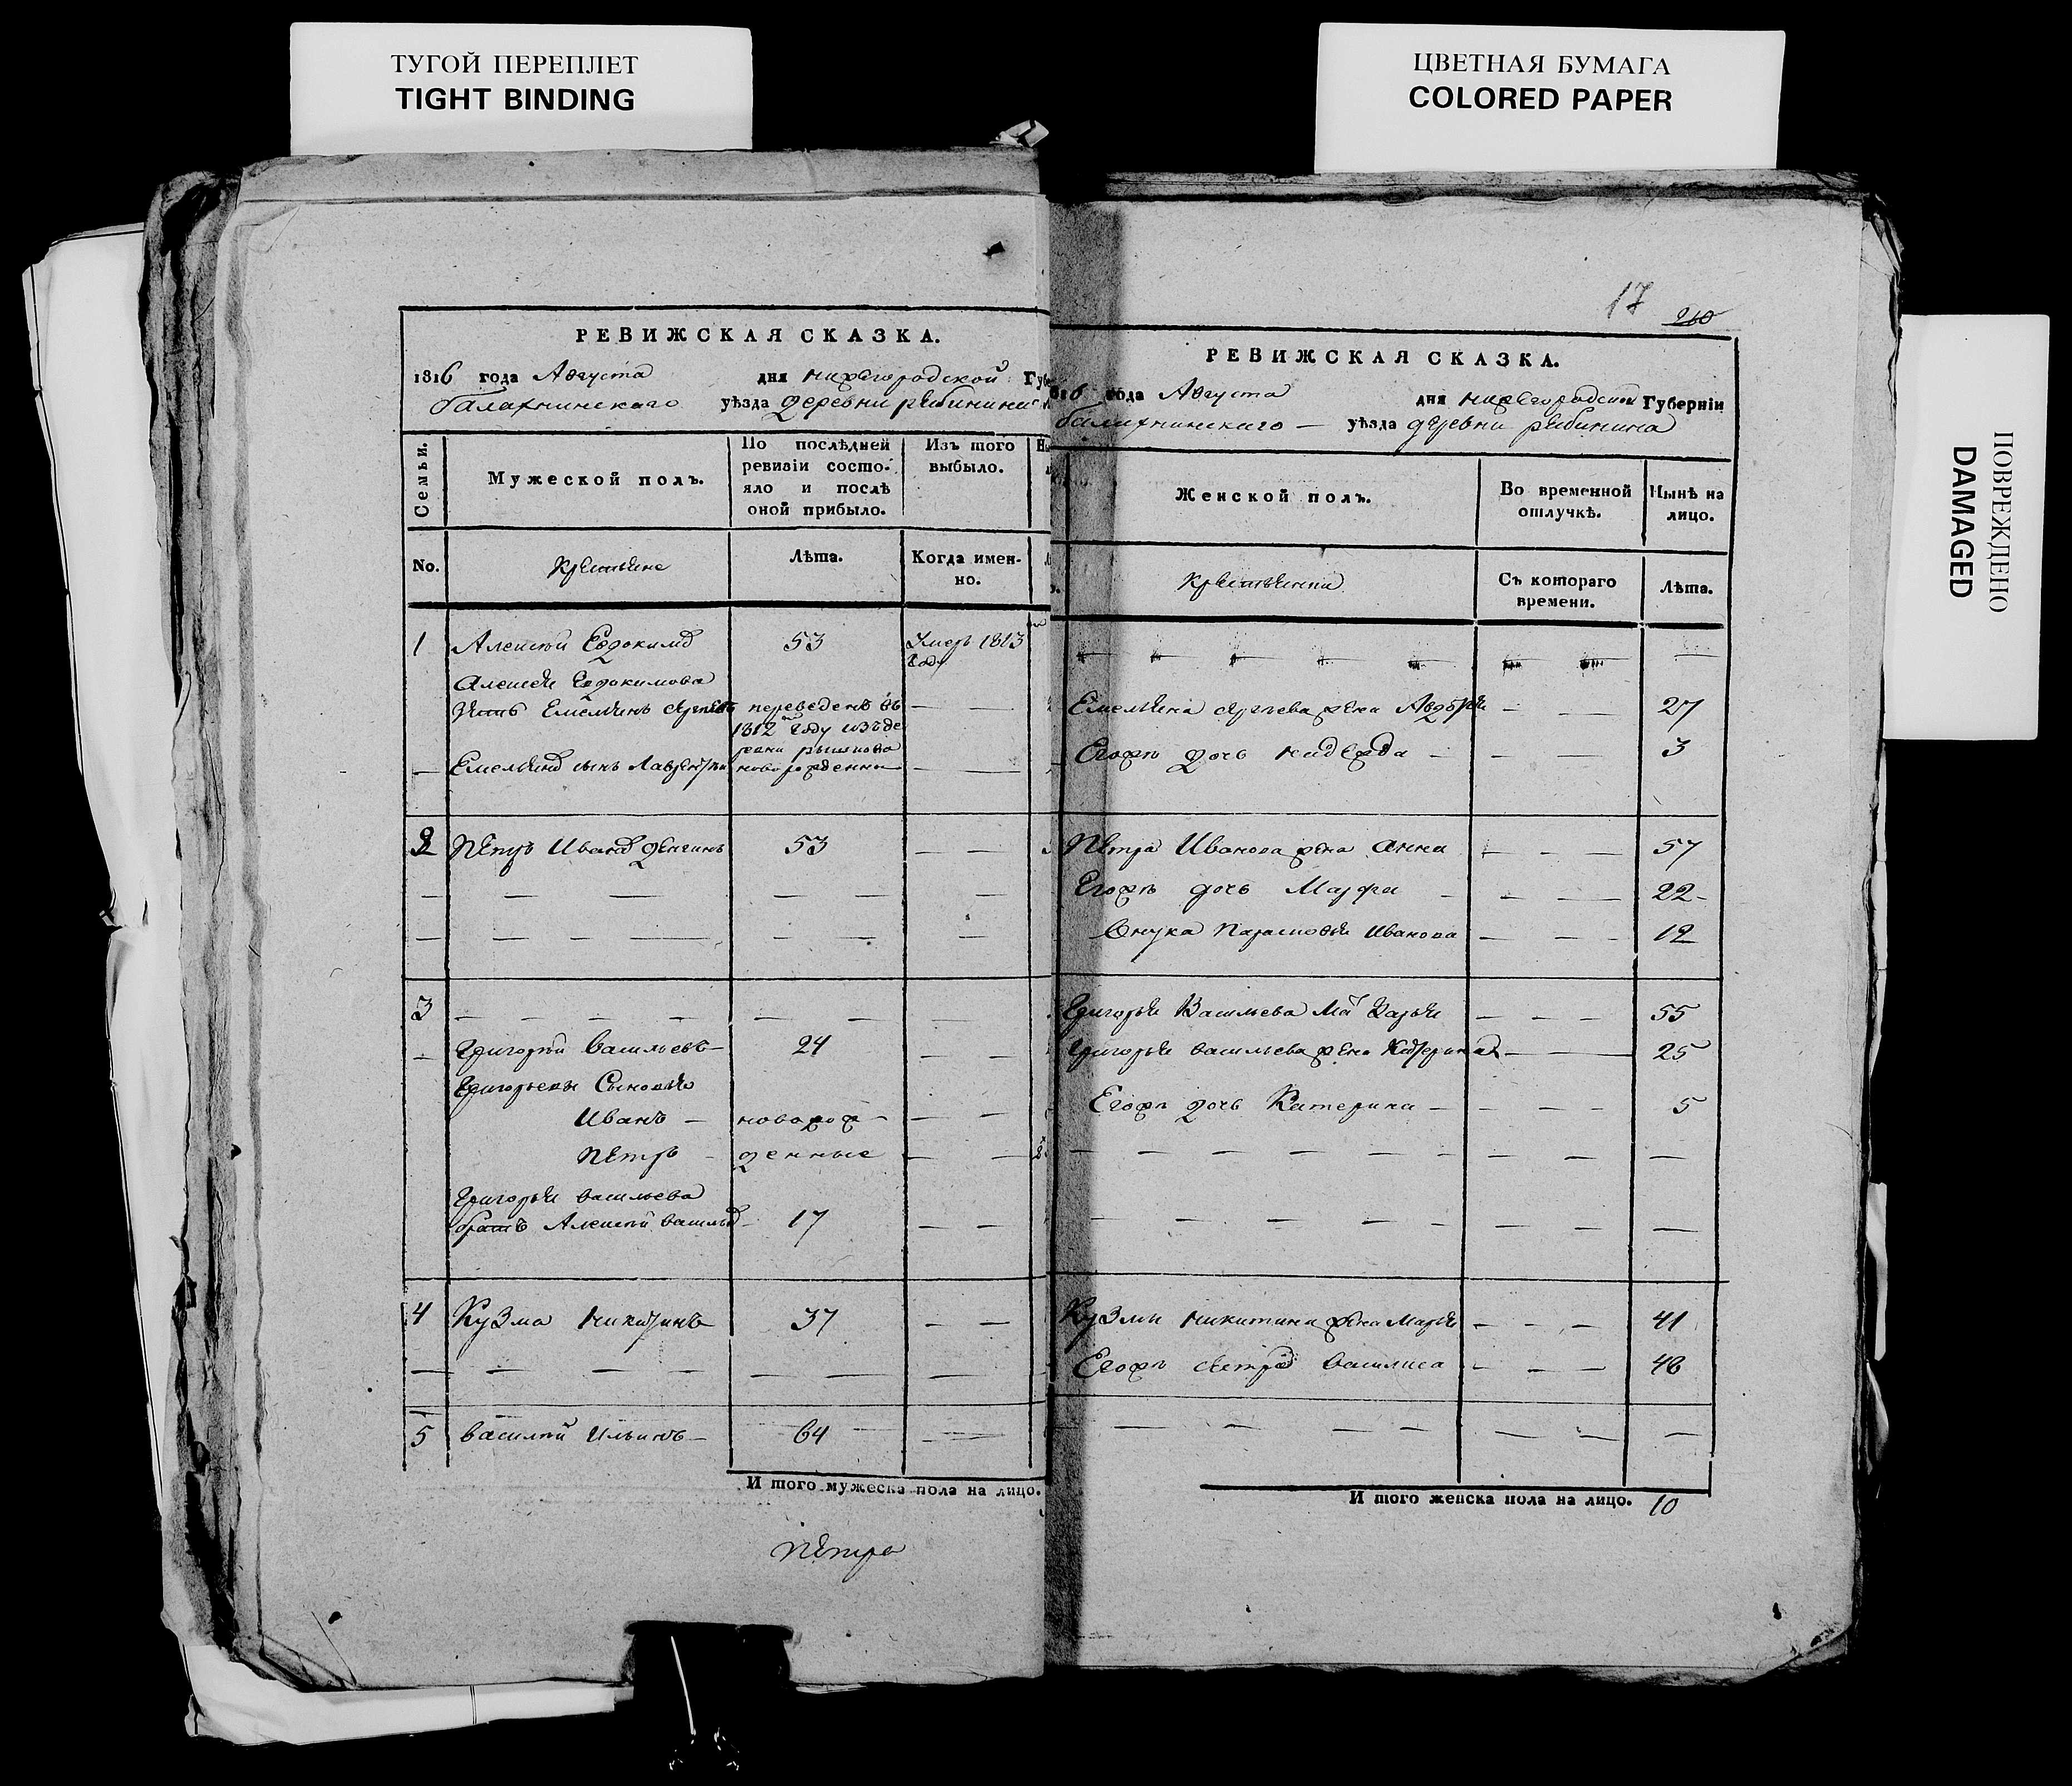 ТУГОЙ ПЕРЕПЛЕТ
TIGHT BINDING
ЦВЕТНАЯ БУМАГА
COLORED PAPER
ПОВРЕЖДЕНО
DAMAGED
РЕВИЖСКАЯ СКАЗКА.
1816 года Августа дня нижегородской Губе
балахнинскаго уѣзда деревни рябинина
Семьи.
Мужеской полъ.
По послѣдней
ревизіи состо-
яло и послѣ
оной прибыло.
Изъ того
выбыло.
No.
Крестьяне
Лѣта.
Когда имен-
но.
1 Алексѣй Евдокимовъ 53 Умеръ 1813
году
Алексея Евдокимова
Зять Емельянъ сергѣевъ переведенъ въ
1812 году изъ де
ревни
Емельяновъ сынъ Лаврентѣи новорожденны
2 Петръ Ивановъ 53
3
Григорѣй Васильевъ 24
Григорьевы Сыновья
Иванъ новорож
Петръ денные
Григорья васильева
братъ Алексѣй васильевъ 17
4 Кузма Никитинъ 37
5 василѣй Ильинъ 64
И того мужеска пола на лицо.
Петра
17 260
РЕВИЖСКАЯ СКАЗКА.
816 года Августа дня нижегородской Губерніи
балахнинскаго уѣзда деревни рябинина
Женской полъ.
Во временной
отлучкѣ.
Нынѣ на
лицо.
Крестьянки
Съ котораго
времени.
Лѣта.
Емельяна сергѣева жена Авдотья 27
Егожъ дочь надежда 3
Петра Иванова жена анна 57
Егожъ дочь Марфа 22
Внука Парасковья Иванова 12
Григорья Васильева Мать Дарья 55
Григорья васильева жена Катерина 25
Егожъ дочь Катерина 5
Кузмы Никитина жена Марья 41
Егожъ сестра василиса 48
И того женска пола на лицо. 10